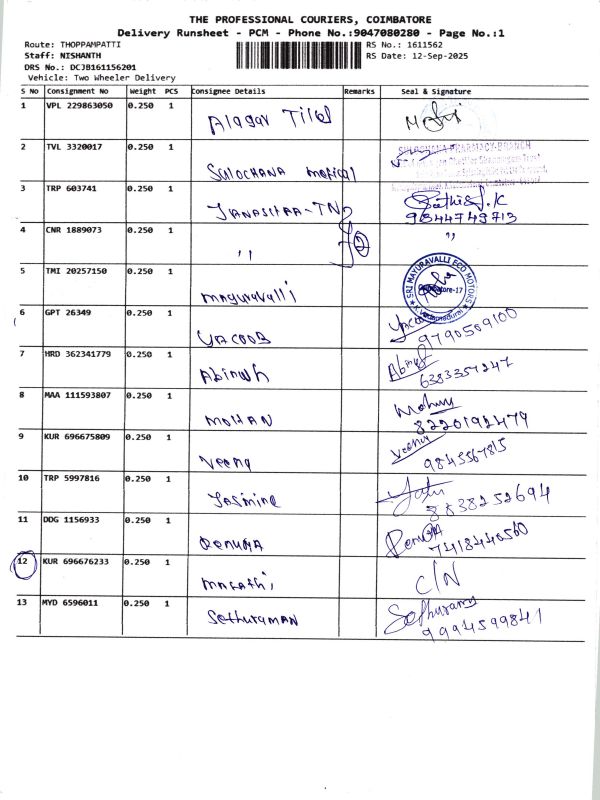 THE PROFESSIONAL COURIERS, COIMBATORE
Delivery Runsheet - PCM - Phone No.:9047080280 - Page No.:1
Route: THOPPAMPATTI RS No.: 1611562
Staff: NISHANTH RS Date: 12-Sep-2025
DRS No.: DCJB161156201
Vehicle: Two Wheeler Delivery
S No Consignment No Weight PCS Consignee Details Remarks Seal & Signature
1 VPL 229863050 0.250 1
Alagar Tiles
2 TVL 3320017 0.250 1 SULOCHANA PHARMACY-BRANCH
SULOCHANA Medical
3 TRP 603741 0.250 1
JANASITAA-TN Sathis.K
9344749713
4 CNR 1889073 0.250 1 ,,
,, 2
5 TMI 20257150 0.250 1 SRI MAYURAVALLI ECO MOTORS
Coimbatore-17
Mayuravalli
6 GPT 26349 0.250 1 Yacoob
YACOOB 9790509100
7 HRD 362341779 0.250 1
Abinesh 6383357247
8 MAA 111593807 0.250 1
MOHAN 8220192479
9 KUR 696675809 0.250 1 Veena
Veena 9843567815
10 TRP 5997816 0.250 1
Jasmine 8838252694
11 DDG 1156933 0.250 1
RENUKA 7418440560
12 KUR 696676233 0.250 1 C/N
Marathi
13 MYD 6596011 0.250 1 Sethuraman
Sethuraman 9994599841